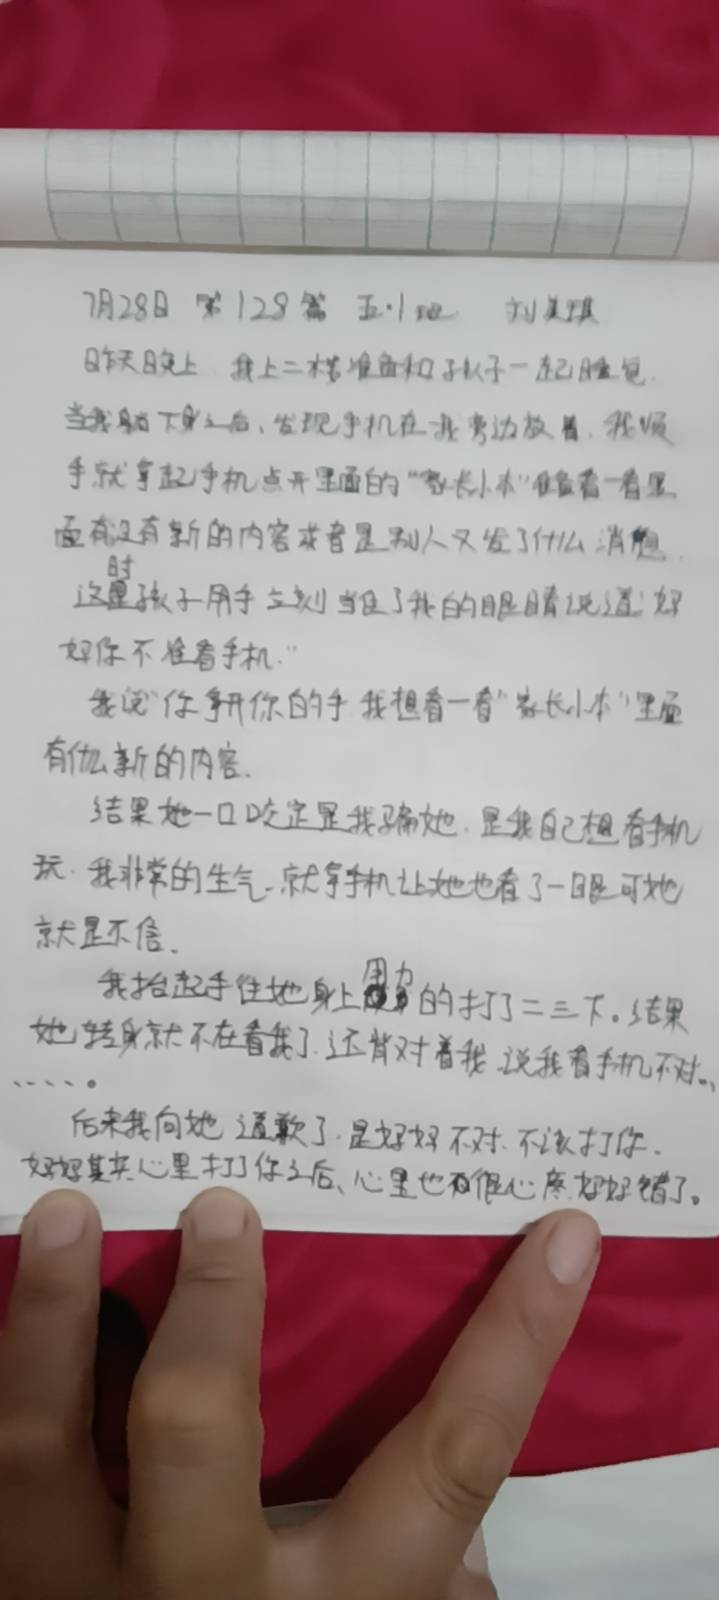 7月28日 第128篇 五·1班 刘美琪
昨天晚上 我上二楼准备和孩子一起睡觉.
当我躺下身之后、发现手机在我旁边放着. 我顺
手就拿起手机点开里面的“家长小本”准备看一看里
面有没有新的内容或者是别人又发了什么消息.
时
这里孩子用手立刻当住了我的眼睛说道:好
好你不准看手机.”
我说“你手开你的手 我想看一看“家长小本”里面
有什么新的内容.
结果她一口咬定是我骗她. 是我自己想看手机
玩. 我非常的生气. 就拿手机让她也看了一眼可她
就是不信.
用力
我抬起手往她身上的打了二三下。结果
她转身就不在看我了.还背对着我.说我看手机不对..
.....。
后来我向她道歉了.是好好不对.不该打你.
好好其实心里打了你之后、心里也很心疼好好错了。